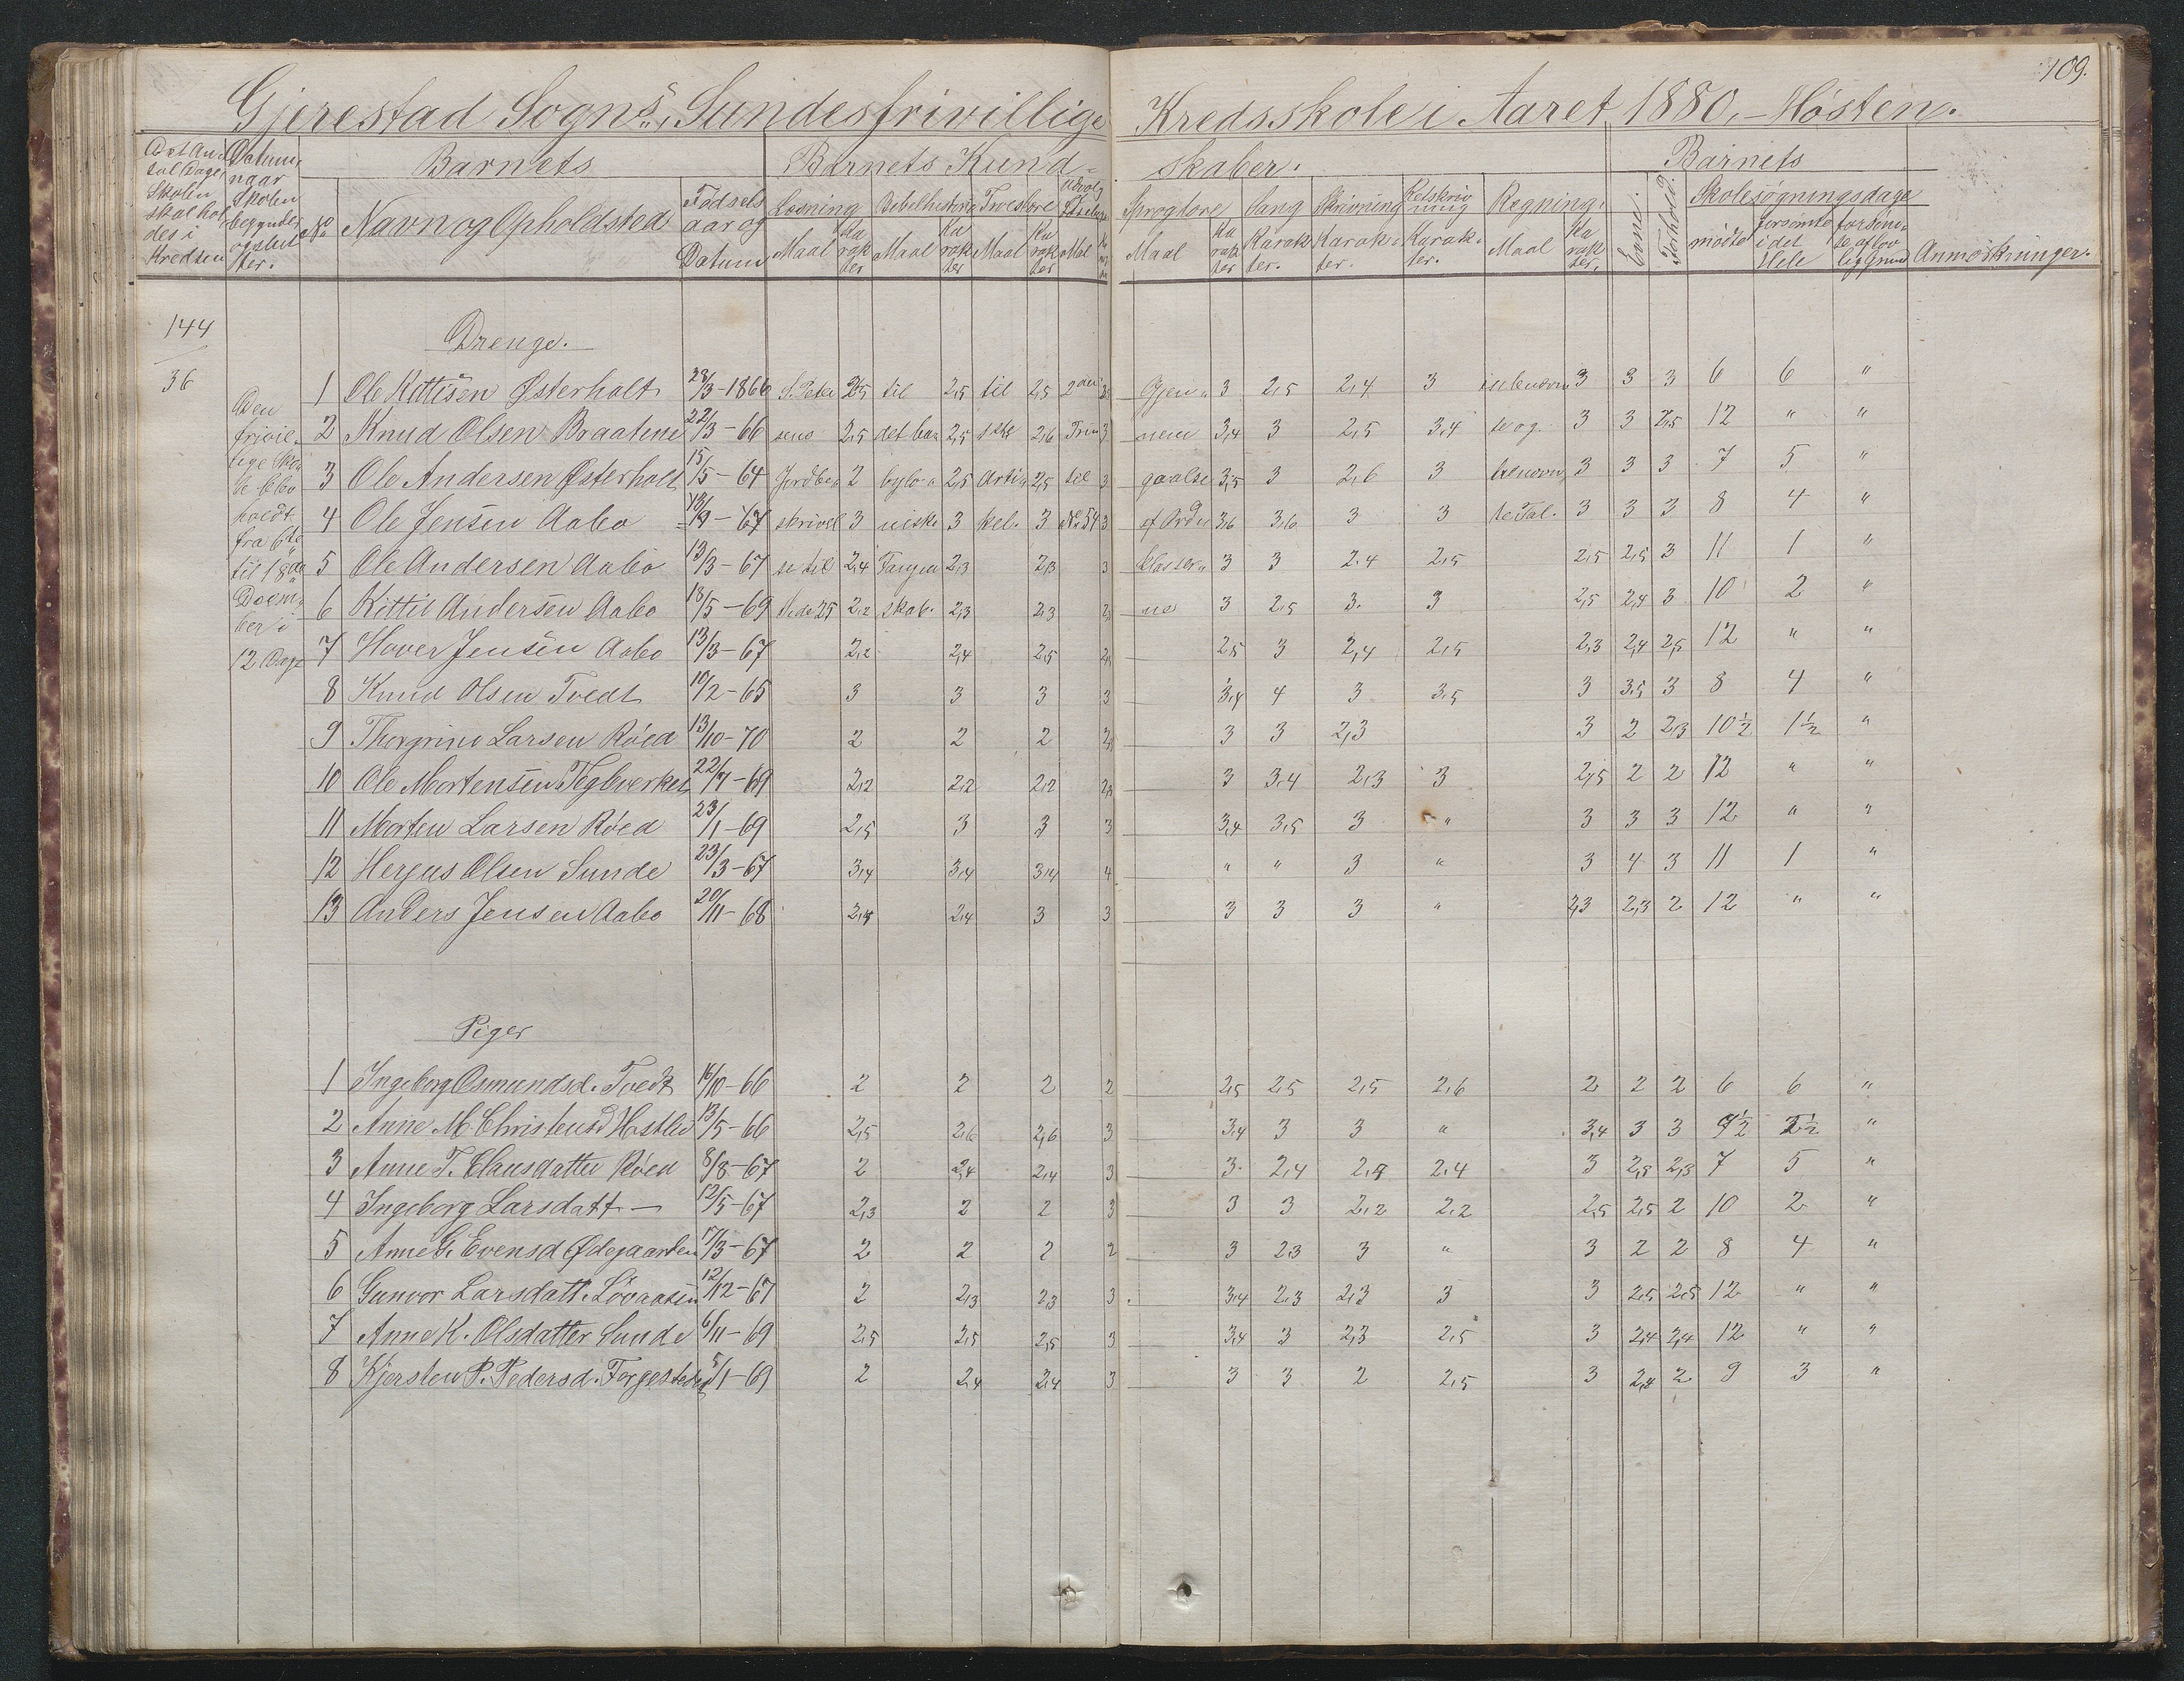 109.
Gjerestad Sogns, Sundes frivillige Kredsskole i Aaret 1880, - Høsten.
Det An- Datum, Barnets Barnets Kund- skaber. Barnets
tal Dage naar
Skolen Skolen
skal hol- begynder
des i og slut-
Kredsen ter.
No Navn og Opholdsted Fødsels aar og Datum Læsning Bibelhistorie Troeslære Sproglære Sang Skrivning Retskrivning Regning. Evne. Forhold. Skolesøgningsdage
Maal Karakter Maal Karakter Maal Karakter Maal Maal Karakter Karakter. Karakter. Karakter. Maal Karakter. mødte forsømte i det Hele forsømte af lovlig Grund Anmærkninger.
144
36
Den
frivil-
lige Sko-
le blev
holdt
fra 6te
til 18de
Decem-
ber i
12 Dage
Drenge.
1 Ole Kittilsen Østerholt 28/3-1866 S. Peter 2,5 til 2,5 til 2,5 2den Gjen- 3 2,5 2,4 3 3 3 3 6 6 "
2 Knud Olsen Braatene 22/3-66 sens 2,5 det ba- 2,5 2,6 3 nem 3,4 3 2,5 3,4 te og 3 3 2,5 12 " "
3 Ole Andersen Østerholt 15/5-64 Jordbe- 2 bylo- 2,5 Arti- 2,5 til 3 gaaelse 3,5 3 2,6 3 3 3 3 7 5 "
4 Ole Jensen Aabo 13/9-67 skrivel 3 niske 3 kel. 3 No 54 3 af Ord 3,6 3,6 3 3 te Tal. 3 3 3 8 4 "
5 Ole Andersen Aabo 13/3-67 se til 2,4 Fangen 2,3 2,3 3 klasser- 3 3 2,4 2,5 2,5 2,5 3 11 1 "
6 Kittil Andersen Aabo 18/5-69 Side 25 2,2 skab. 2,3 2,3 ne 3 2,5 3. 3 2,5 2,4 3 10 2 "
7 Haver Jensen Aabo 13/3-67 2,2 2,4 2,5 2,5 3 2,4 2,5 2,3 2,4 2,5 12 " "
8 Knud Olsen Tvedt 10/2-65 3 3 3 3 3,4 4 3 3,5 3 3,5 3 8 4 "
9 Thorgrim Larsen Røed 13/10-70 2 2 2 3 3 2,3 3 2 2,3 10½ 1½ "
10 Ole Mortensen Teglverket 22/7-69 2,2 2,2 2,2 3 3,4 2,3 3 2,5 2 2 12 " "
11 Morten Larsen Røed 23/1-69 2,5 3 3 3 3,4 3,5 3 " 3 3 3 12 " "
12 Herjus Olsen Sunde 23/3-67 3,4 3,4 3,4 4 " " 3 " 3 4 3 11 1 "
13 Anders Jensen Aabo 20/11-68 2,4 2,4 3 3 3 3 3 " 2,3 2,3 2 12 " "
Piger
1 Ingeborg Osmundsd. Tvedt 16/10-66 2 2 2 2 2,5 2,5 2,5 2,6 2 2 2 6 6 "
2 Anne M. Christensd Hastlid 13/5-66 2,5 2,6 2,6 3 3,4 3 3 " 3,4 3 3 "
3 Anne T. Clausdatter Røed 8/8-67 2 2,4 2,4 3 3 2,4 2,4 3 2,5 2,3 7 5 "
4 Ingeborg Larsdatt — 12/5-67 2,3 2 2 3 3 3 2,2 2,2 2,5 2,5 2 10 2 "
5 Anne G. Evensd Ødegaarden 17/3-67 2 2 2 2 3 2,3 3 " 3 2 2 8 4 "
6 Gunvor Larsdatt. Løvaasen 12/12-67 2 2,3 2,3 3 3,4 2,3 2,3 3 3 2,5 2,5 12 " "
7 Anne K. Olsdatter Sunde 6/11-69 2,5 2,5 2,5 3 3,4 3 2,3 2,5 3 2,4 2,4 12 " "
8 Kjersten P. Pedersd. 5/1-69 2 2,4 2,4 3 3 3 2 2,5 3 2,4 2 9 3 "